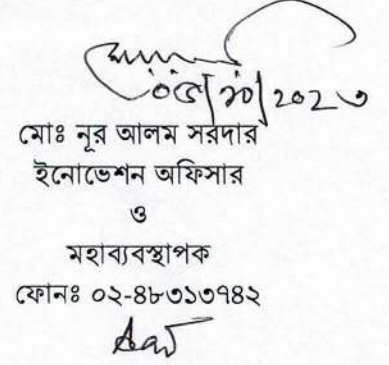 ০৫/১০/২০২৩
মোঃ নূর আলম সরদার
ইনোভেশন অফিসার
ও
মহাব্যবস্থাপক
ফোনঃ ০২-৪৮৩১৩৭৪২